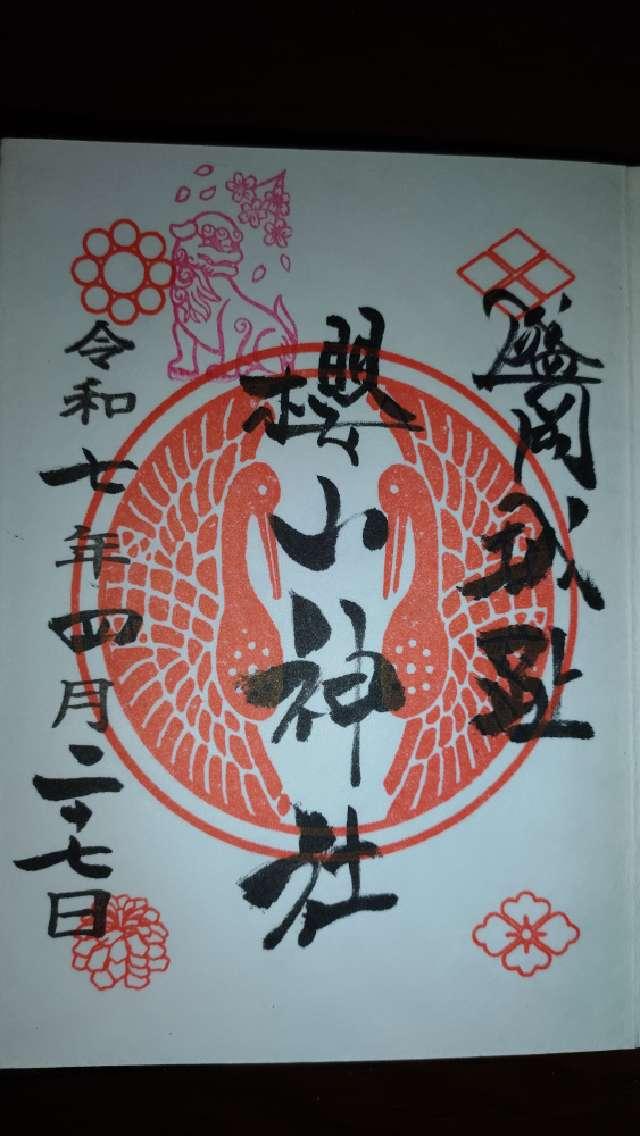 盛岡城趾
櫻山神社
令和七年四月二十七日